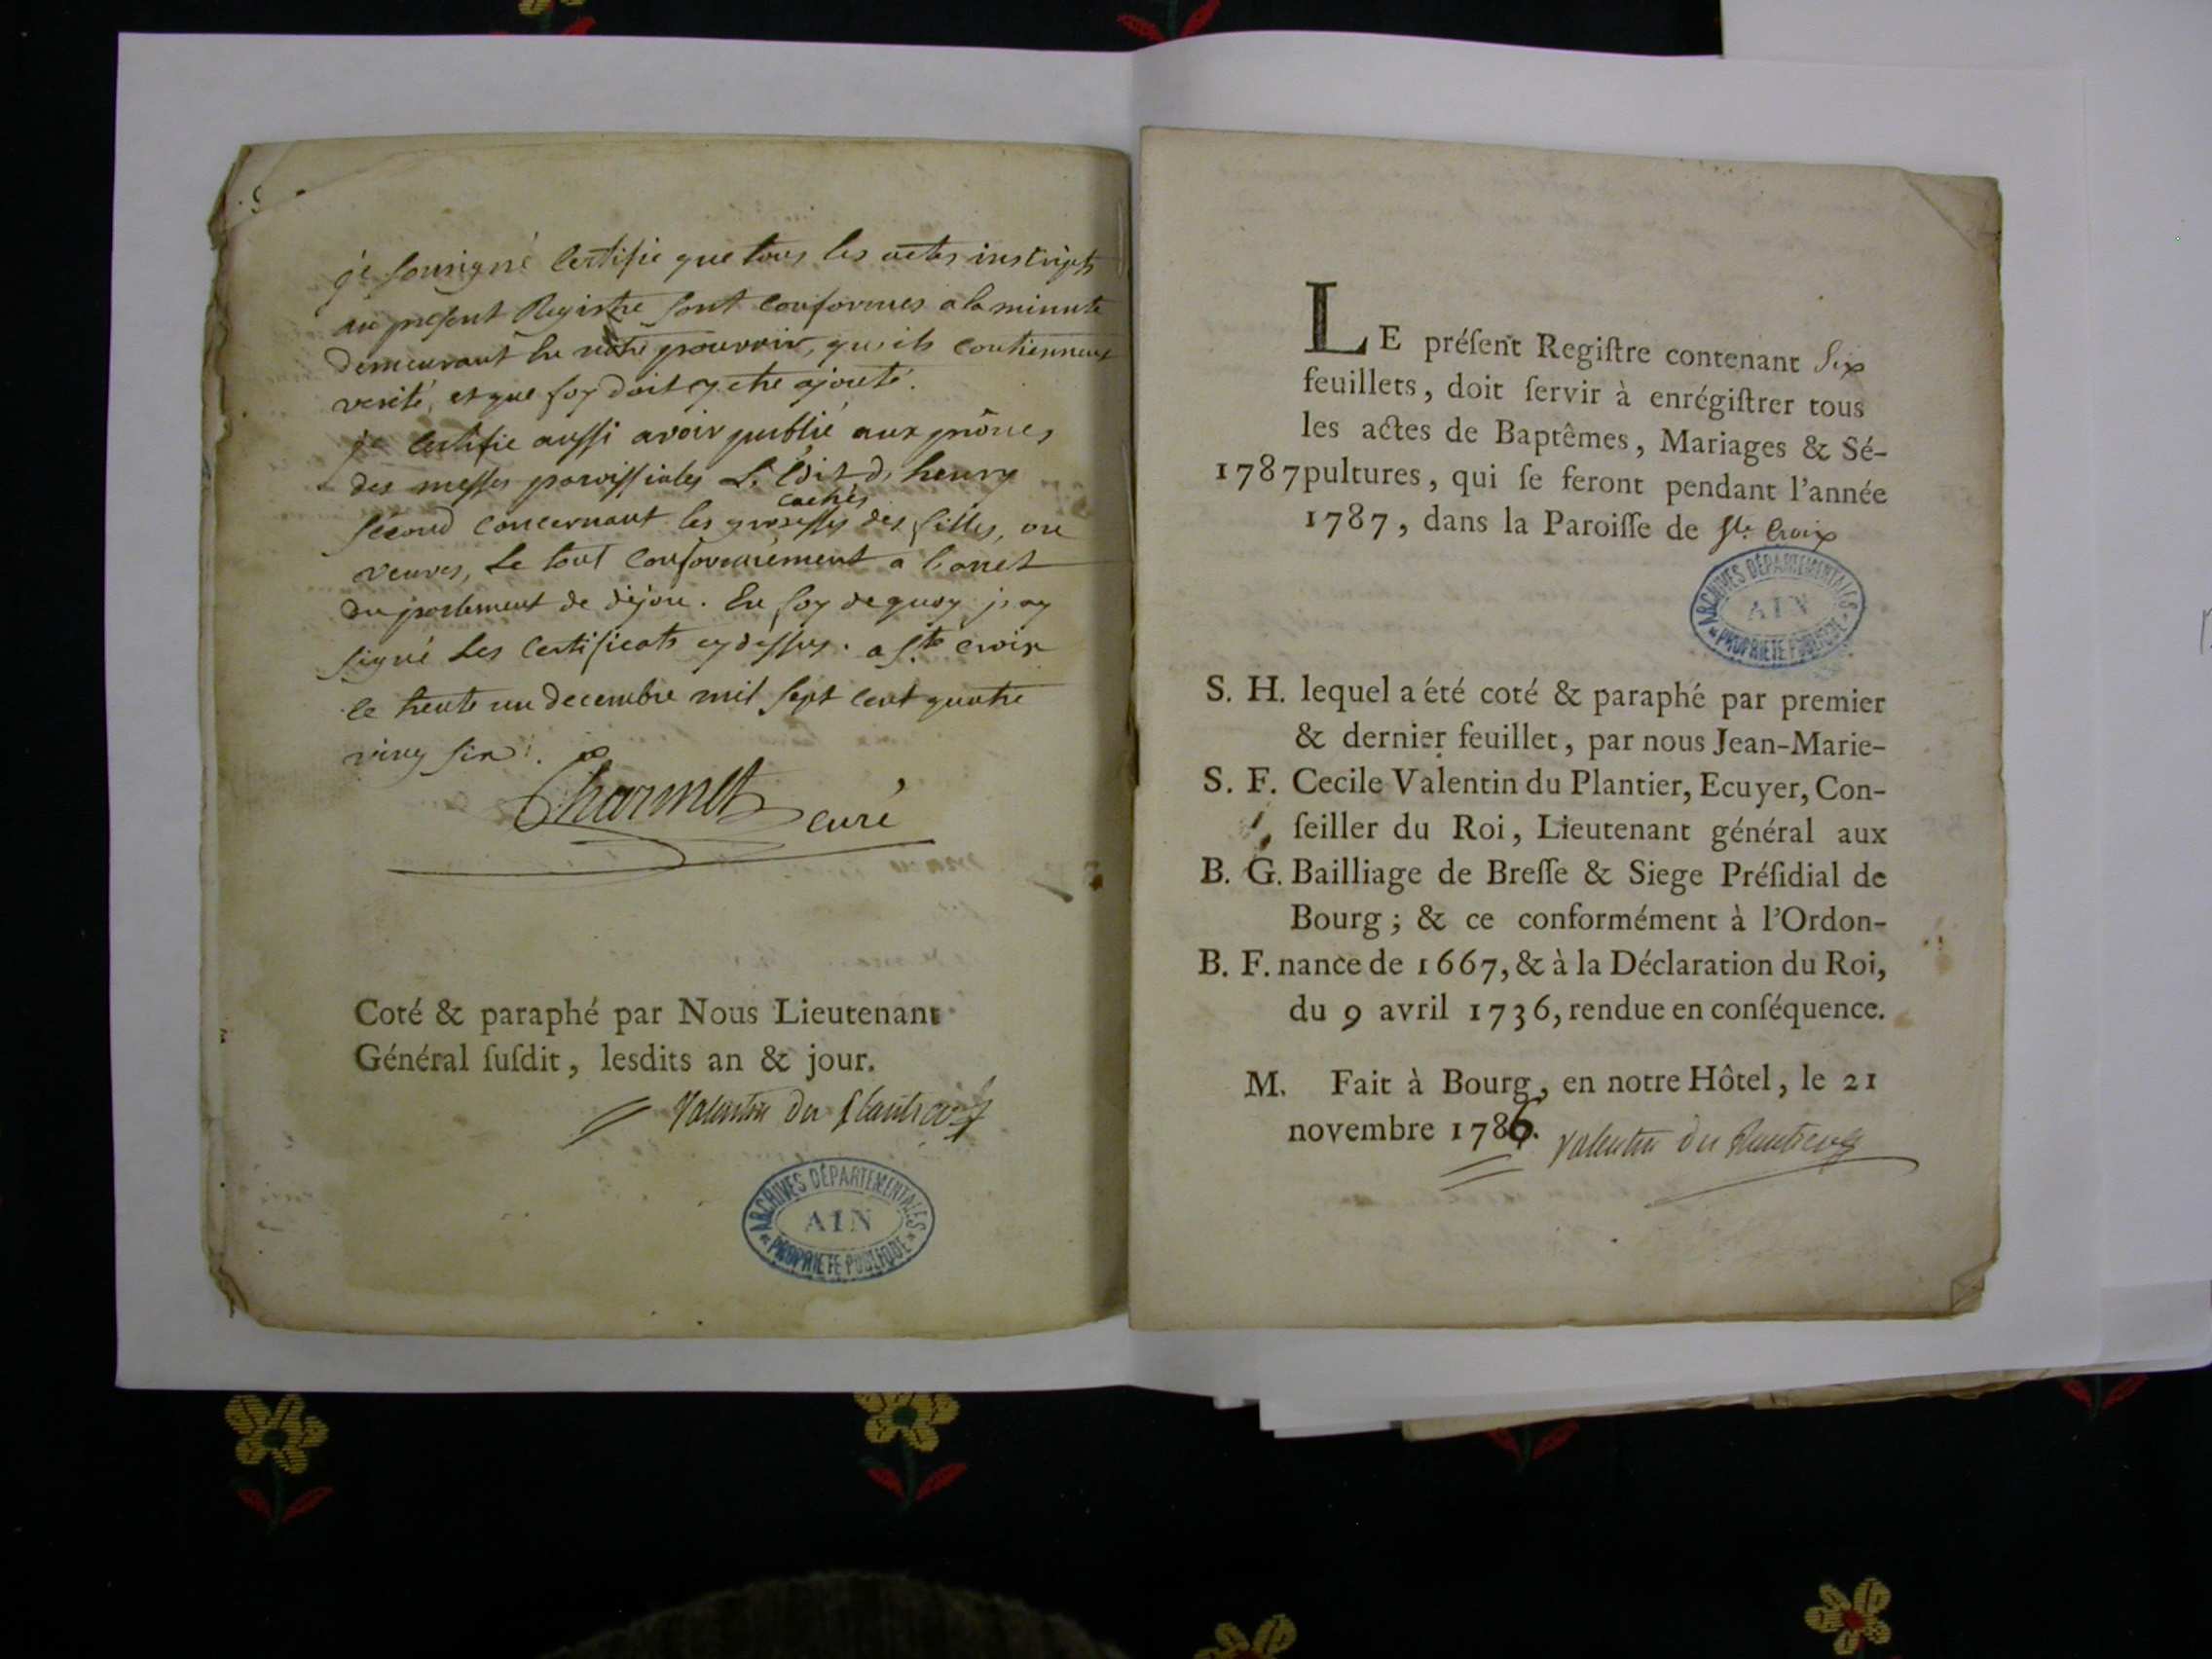 je sousigné certifie que tous les actes inscripts
au present Registre sont conformes a la minute
demeurant en notre pouvoir, qu'ils contiennent
verité, et que foy doit y etre ajouté.
je certifie aussi avoir publié aux prônes
des messes paroissiales L'Edit d'henry
cachés
second concernant les grossesses des filles, ou
veuves, le tout conformément a l'arret
du parlement de dijon. En foy de quoy j'ay
signé les certificats cy dessus. a Ste croix
le trente un decembre mil sept cent quatre
ving six.
Charmet curé
Coté & paraphé par Nous Lieutenant
Général ſuſdit, lesdits an & jour.
Valentin du Plantier
ARCHIVES DÉPARTEMENTALES
AIN
PROPRIETE PUBLIQUE
LE préſent Regiſtre contenant Six
feuillets, doit ſervir à enrégiſtrer tous
les actes de Baptêmes, Mariages & Sé-
1787 pultures, qui ſe feront pendant l'année
1787, dans la Paroiſſe de Ste. Croix
ARCHIVES DÉPARTEMENTALES
AIN
PROPRIETE PUBLIQUE
S. H. lequel a été coté & paraphé par premier
& dernier feuillet, par nous Jean-Marie-
S. F. Cecile Valentin du Plantier, Ecuyer, Con-
ſeiller du Roi, Lieutenant général aux
B. G. Bailliage de Breſſe & Siege Préſidial de
Bourg ; & ce conformément à l'Ordon-
B. F. nance de 1667, & à la Déclaration du Roi,
du 9 avril 1736, rendue en conſéquence.
M. Fait à Bourg, en notre Hôtel, le 21
novembre 1786.
Valentin du Plantier